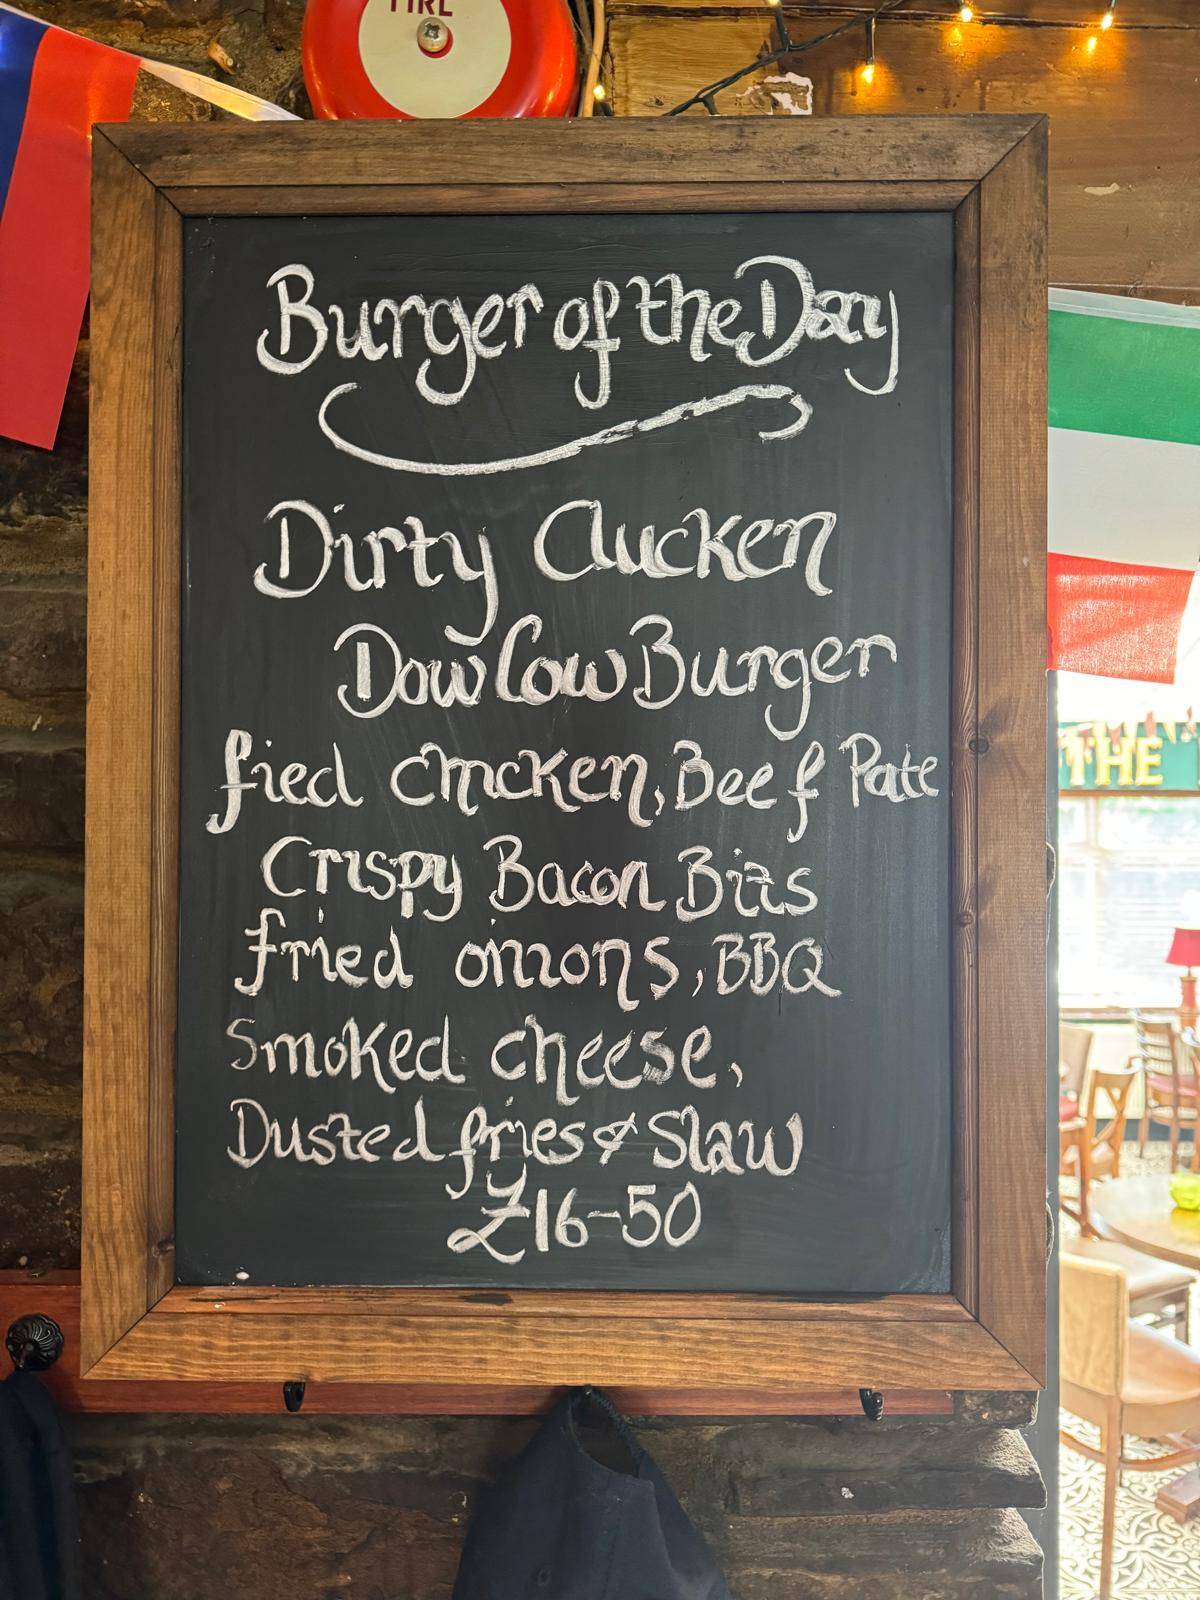 FIRE
Burger of the Day
Dirty Clucken
Dow Low Burger
fied chicken, Beef Pate
Crispy Bacon Bits
fried onions, BBQ
Smoked cheese,
Dusted fries & Slaw
£16-50
THE